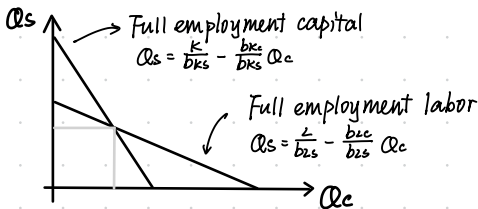 Qs
Full employment capital
Qs = K/bKs - bKc/bKs Qc
Full employment labor
Qs = L/bLs - bLc/bLs Qc
Qc